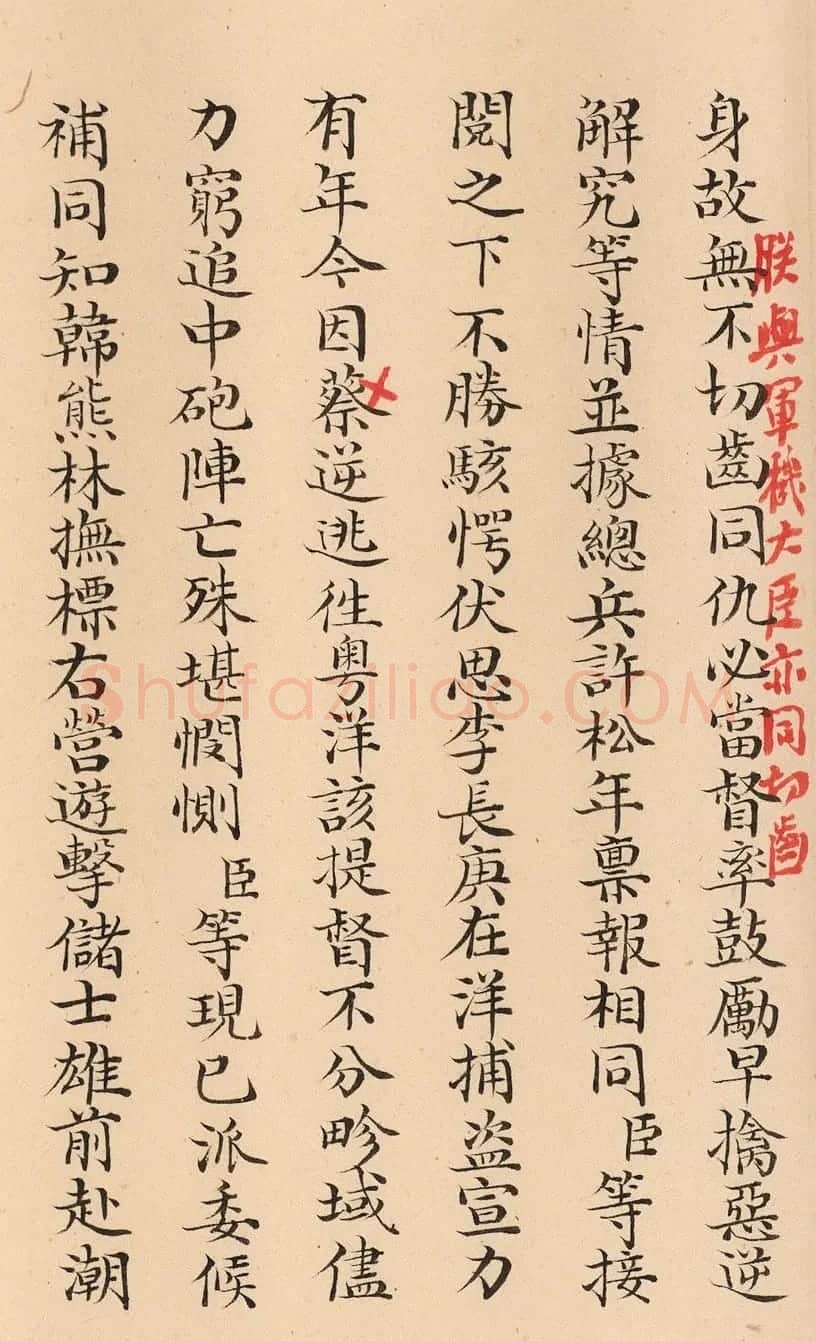 身故無不切齒同仇必當督率鼓勵早擒惡逆
朕與軍機大臣亦同切齒
解究等情並據總兵許松年稟報相同臣等接
閱之下不勝駭愕伏思李長庚在洋捕盜宣力
有年今因蔡逆逃往粵洋該提督不分畛域儘
力窮追中砲陣亡殊堪憫惻臣等現已派委候
補同知韓熊林撫標右營遊擊儲士雄前赴潮
Shufaziliao.COM